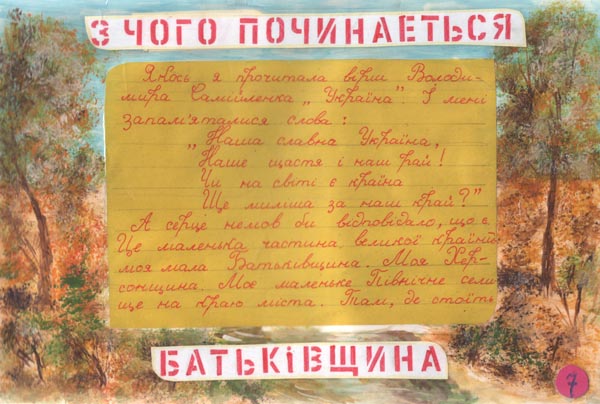 З ЧОГО ПОЧИНАЕТЬСЯ
Якось я прочитала вірш Володи-
мира Самійленка „Україна". І мені
запам'яталися слова:
„Наша славна Україна,
Наше щастя і наш рай!
Чи на світі є країна
Ще миліша за наш край?"
А серце немов би відповідало, що є.
Це маленька частина великої країни
моя мала Батьківщина. Моя Хер-
сонщина. Моє маленьке Північне сели-
ще на краю міста. Там, де стоїть
БАТЬКІВЩИНА
7